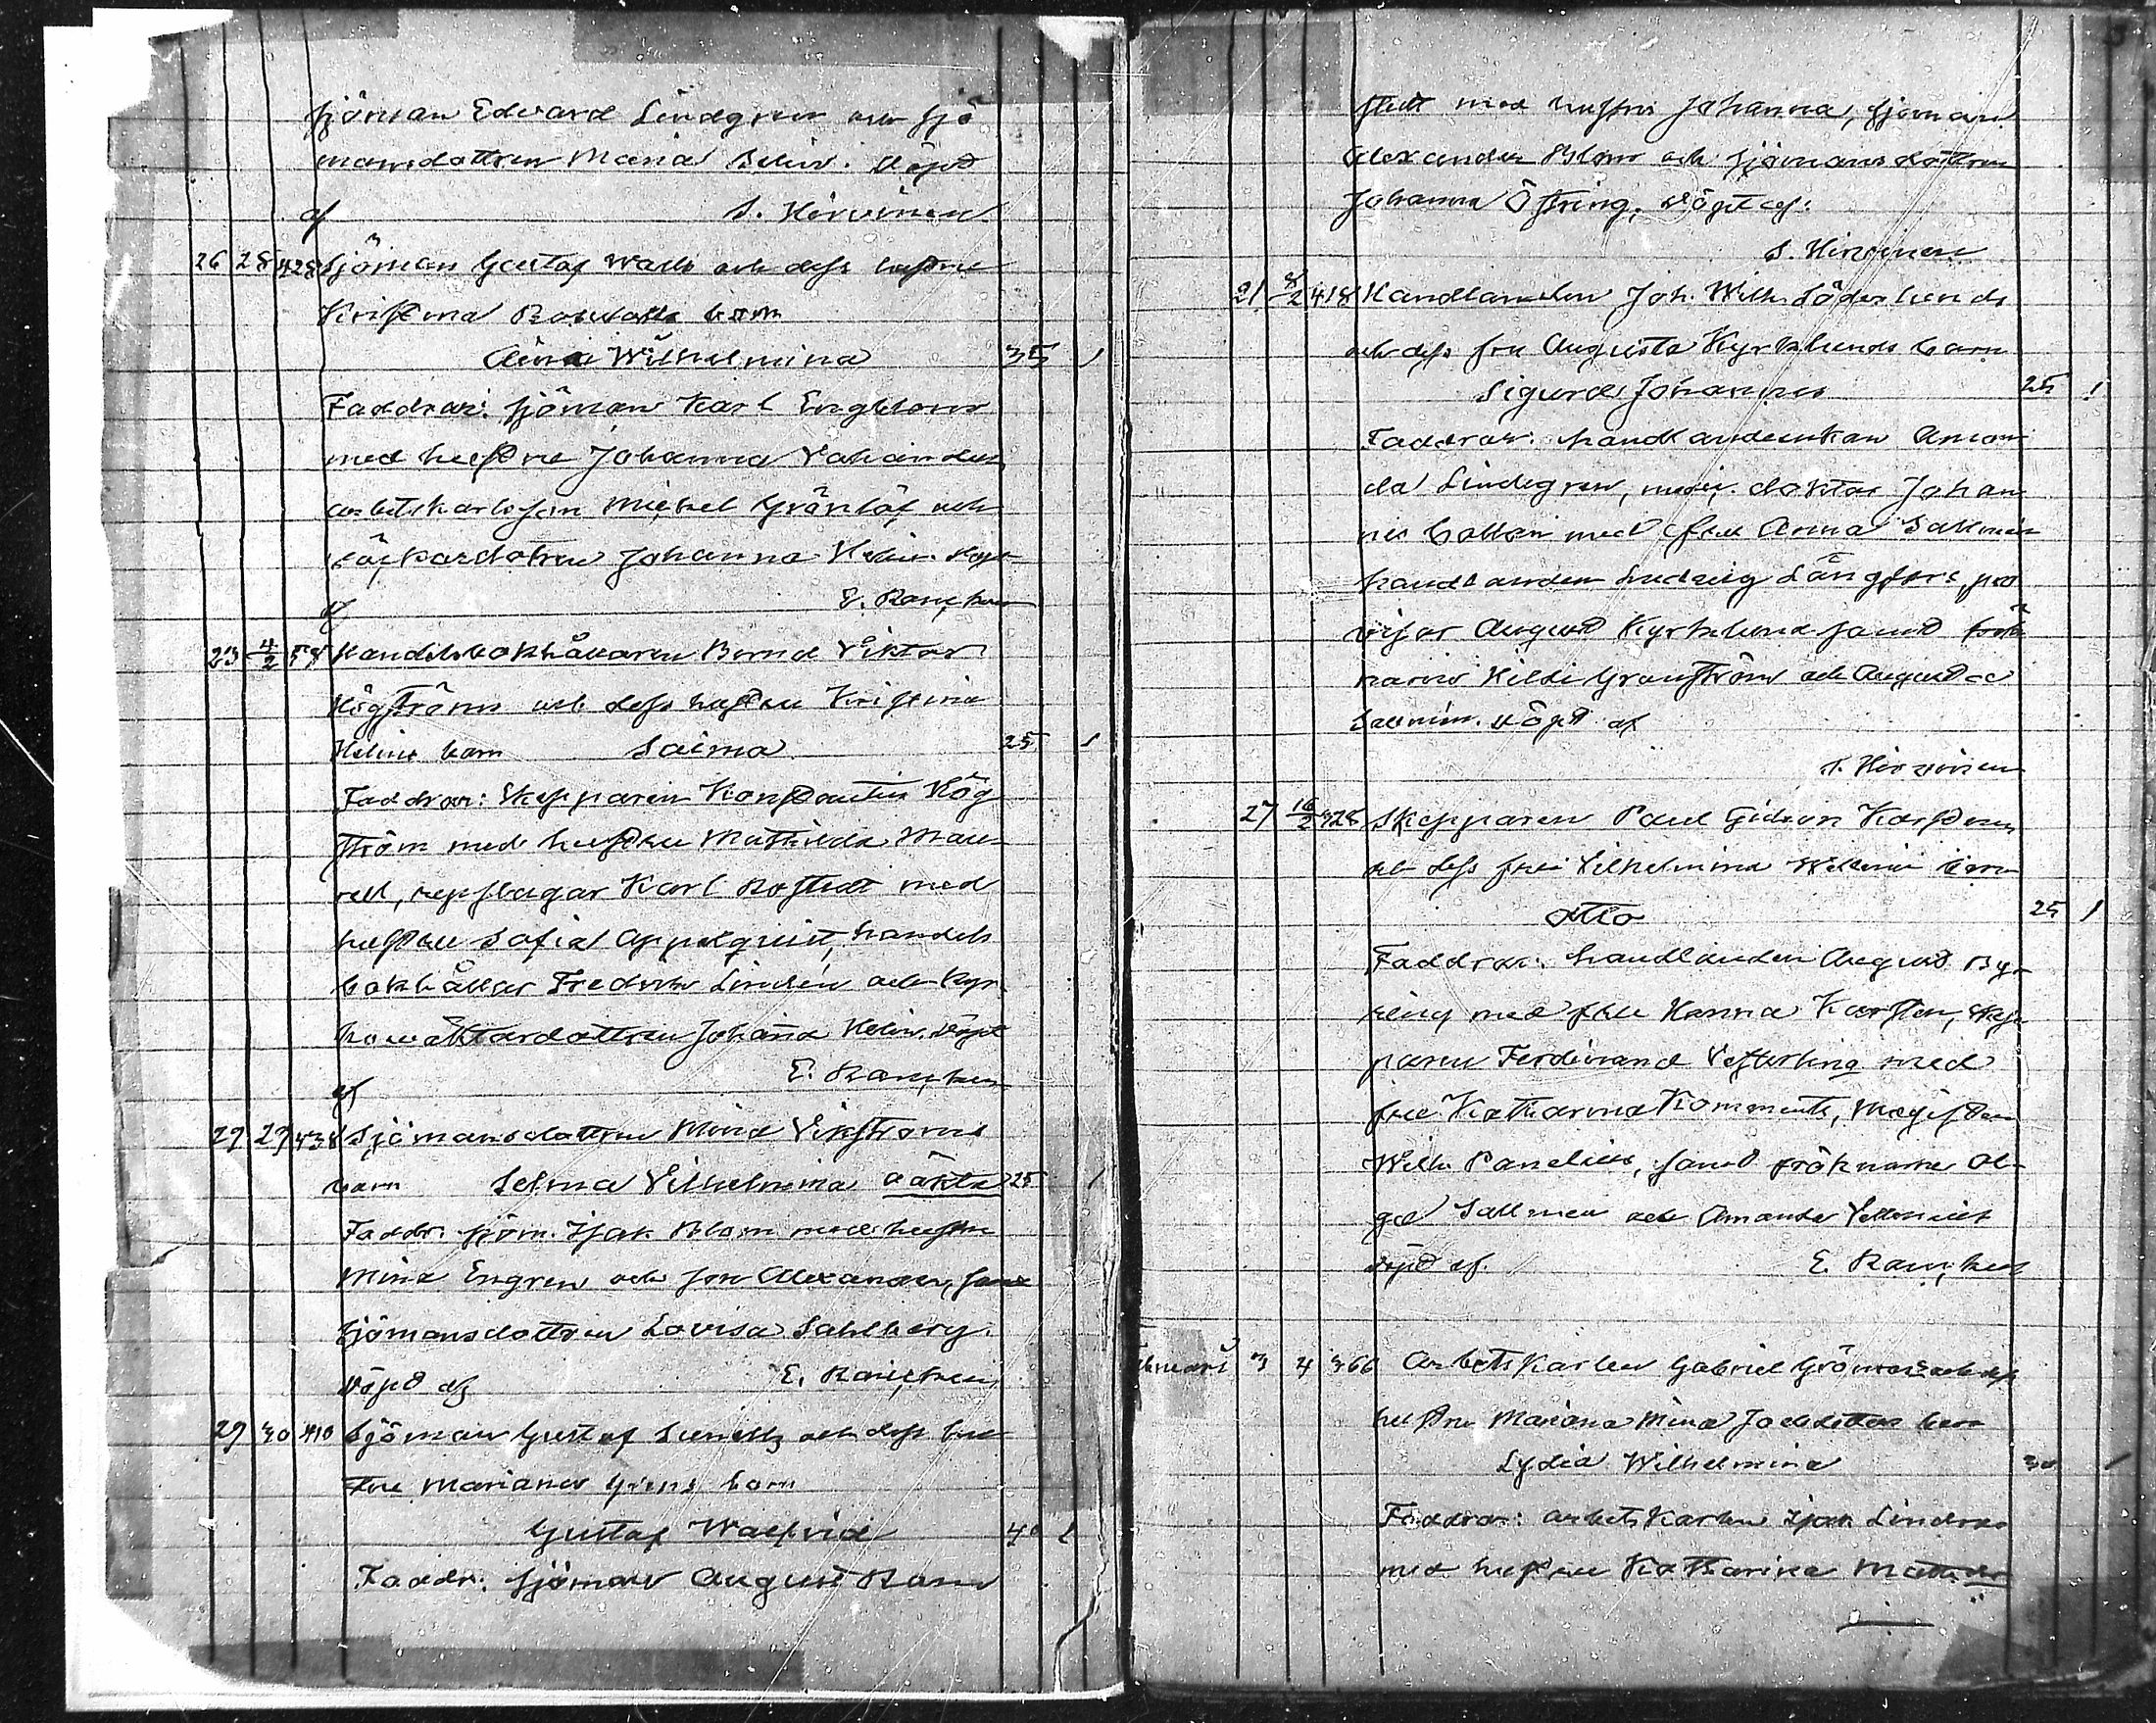 sjöman Edvard Lindgren och sjö
mansdottren Maria Selin. Döpt
af S. Hirvinen
26 28 428 Sjöman Gustaf Walls och dess hustru
Kristina barn
Aina Wilhelmina 35 1
Faddrar: sjöman Karl Engblom
med hustru Johanna Vahander
arbetskarlsson Mickel Grönlöf och
dottren Johanna Helin. Döpt
af E. Rancken
23 4/2 Handelsbokhållaren Bernd Viktor
Högströms och dess hustru Kristina
Helins barn Saima 25 1
Faddrar: Skepparen Konstantin Hög
ström med hustru Mathilda Mau-
rell, repslagar Karl Bostedt med
hustru Sofia Appelqvist, handels
bokhållar Fredrik Lindén och kyr-
kovaktardottren Johanna Helin. Döpt
af E. Rancken
27 29 438 Sjömansdottren Mina Vikströms
barn Selma Vilhelmina oäkta 25 1
Faddr. sjöm. Isak Blom med hustru
Mina Engren och son Alexander, samt
sjömansdottren Lovisa Sahlberg.
Döpt af E. Rancken
29 30 410 Sjöman Gustaf och dess hus
tru Mariana barn
Gustaf Walfrid 40 1
Faddr. sjöman August
stedt med hustru Johanna, sjöman
Alexander Blom och sjömansdottren
Johanna Östring, döpt af:
S. Hirvinen
21 418 Handlanden Joh. Wilh. Söderlunds
och dess fru Augusta Kyrklunds barn
Sigurd Johannes 25 1
Faddrar: handlandeenkan Aman
da Lindegren, medi. doktor Johan
nes med fru Anna Sallmén
handlanden Ludvig Långfors, pro
visor August Kyrklund samt frök
narna Hilda Granström och Augusta
Sallmén. döpt af
S. Hirvinen
27 16/2 428 Skepparen Paul Gideon Karstens
och dess fru Vilhelmina barn
Otto 25 1
Faddrar: handlanden August By-
ring med fru Hanna Karsten, skep
paren Ferdinand Vesterling med
fru Katharina, Magistern
Wilh. Panelius, samt fröknarna Ol-
ga Sallmén och Amanda
döpt af. E. Rancken
Februari 3 4 366 Arbetskarlen Gabriel och dess
hustru Mariana Mina barn
Lydia Wilhelmina 30 1
Faddrar: arbetskarlen Isak
med hustru Katharina Mattsdr